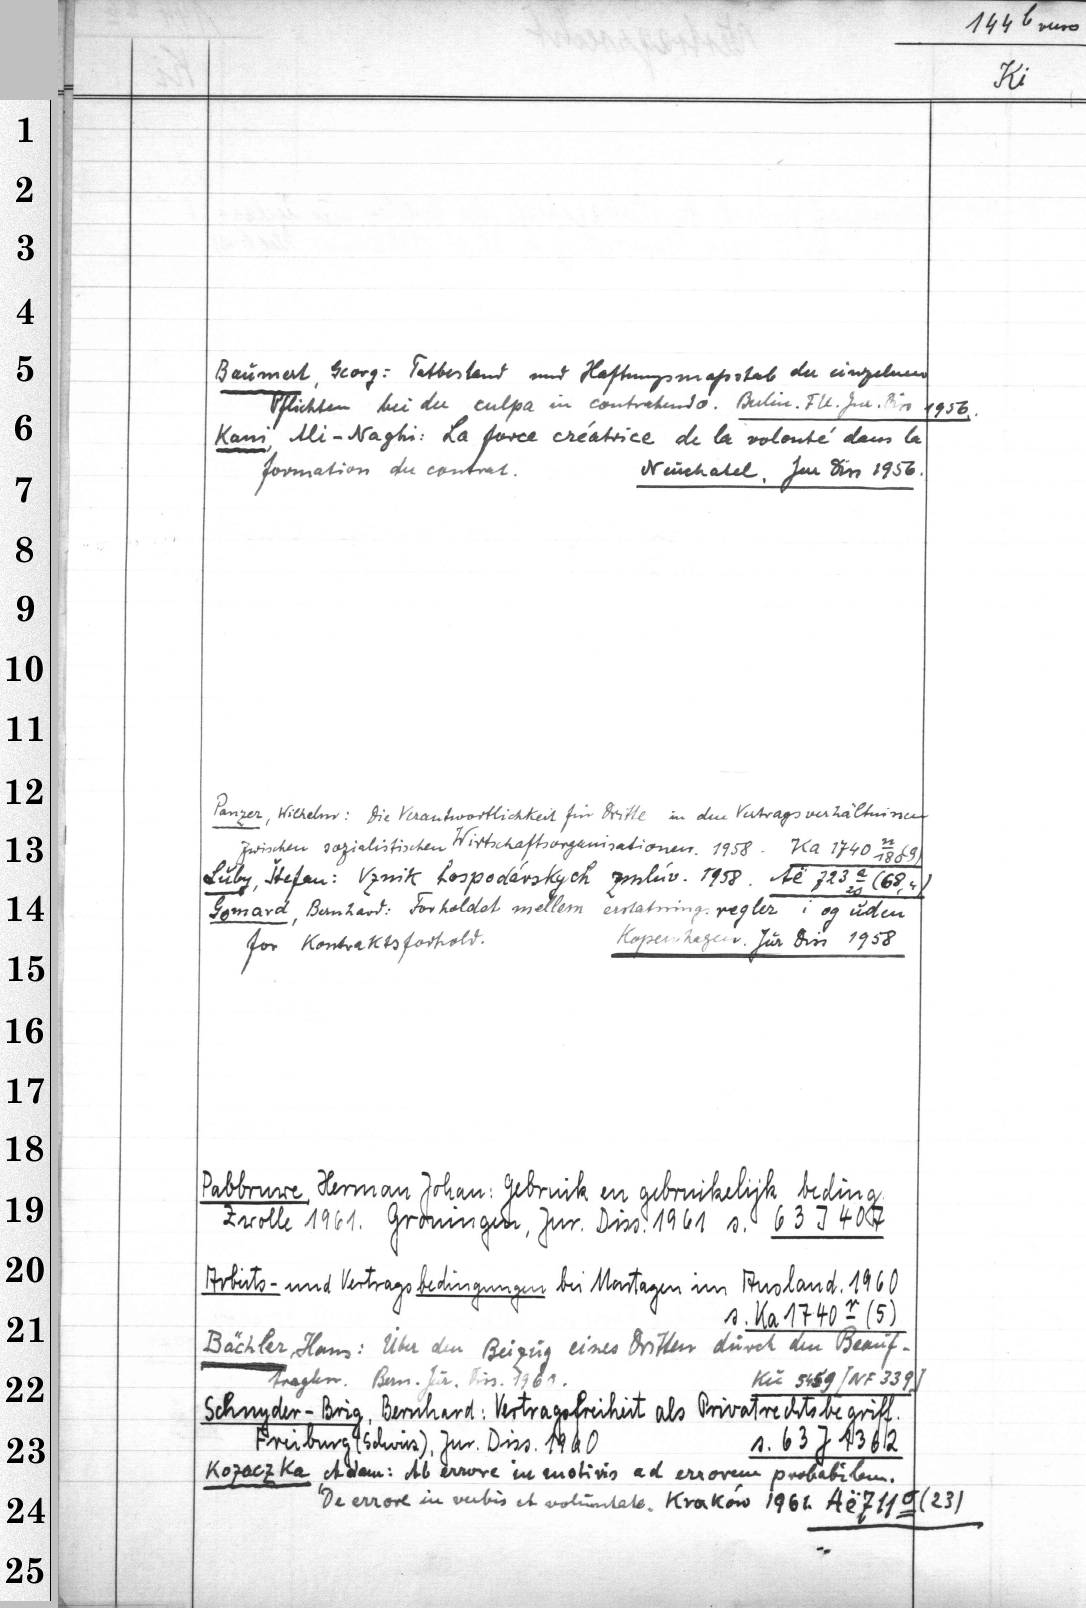 144 b verso
Ki
1
2
3
4
5
Baumert, Georg: Tatbestand und Haftungsmaßstab der einzelnen
Pflichten bei der culpa in contrahendo. Berlin. F.U. Jur. Diss 1956.
6
Kani, Ali-Naghi: La force créatrice de la volonté dans la
formation du contrat. Neuchatel, Jur Diss 1956.
7
8
9
10
11
12
Panzer, Wilhelm: Die Verantwortlichkeit für Dritte in den Vertragsverhältnissen
zwischen sozialistischen Wirtschaftsorganisationen. 1958. Ka 1740
13
Luby, Štefan: Vznik hospodárskych zmlúv. 1958. Aë 723 a
14
Gomard, Bernhard: Forholdet mellem erstatningsregler i og uden
for Kontraktsforhold. Kopenhagen. Jur Diss 1958
15
16
17
18
Pabbruwe, Herman Johan: Gebruik en gebruikelijk beding.
19
Zwolle 1961. Groningen, Jur. Diss. 1961 s. 63 J 407
20
Arbeits- und Vertragsbedingungen bei Montagen im Ausland. 1960
s. Ka 1740 n (5)
21
Bächler, Hans: Über den Beizug eines Dritten durch den Beauf-
tragten. Bern. Jur. Diss. [NF 339]
22
Schnyder-Brig, Bernhard: Vertragsfreiheit als Privatrechtsbegriff.
23
Freiburg (Schweiz), Jur. Diss. 1960 s. 63 J 1362
Kozaczka Adam: Ab errore in motivis ad errorem probabilem.
24
De errore in verbis et voluntate. Kraków 1961. (23)
25